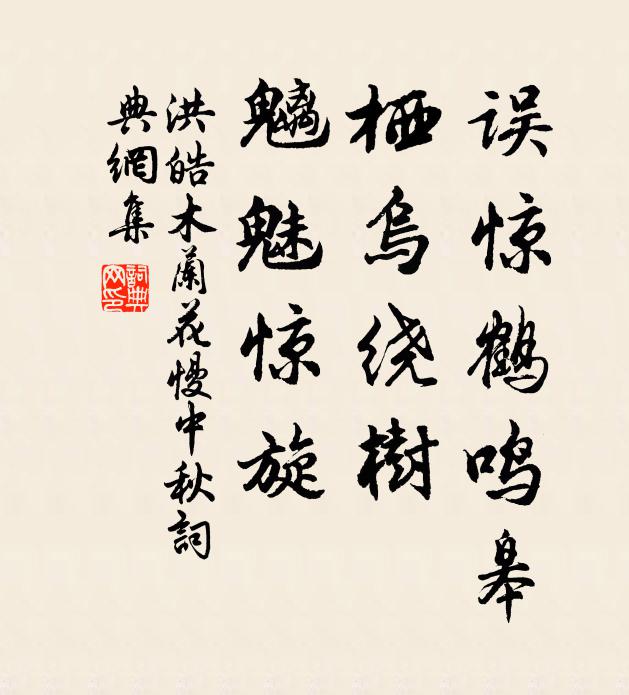 误惊鹤鸣皋
栖乌绕树
魑魅惊旋
洪皓木蘭花慢中秋詞
典網集
詞典网印